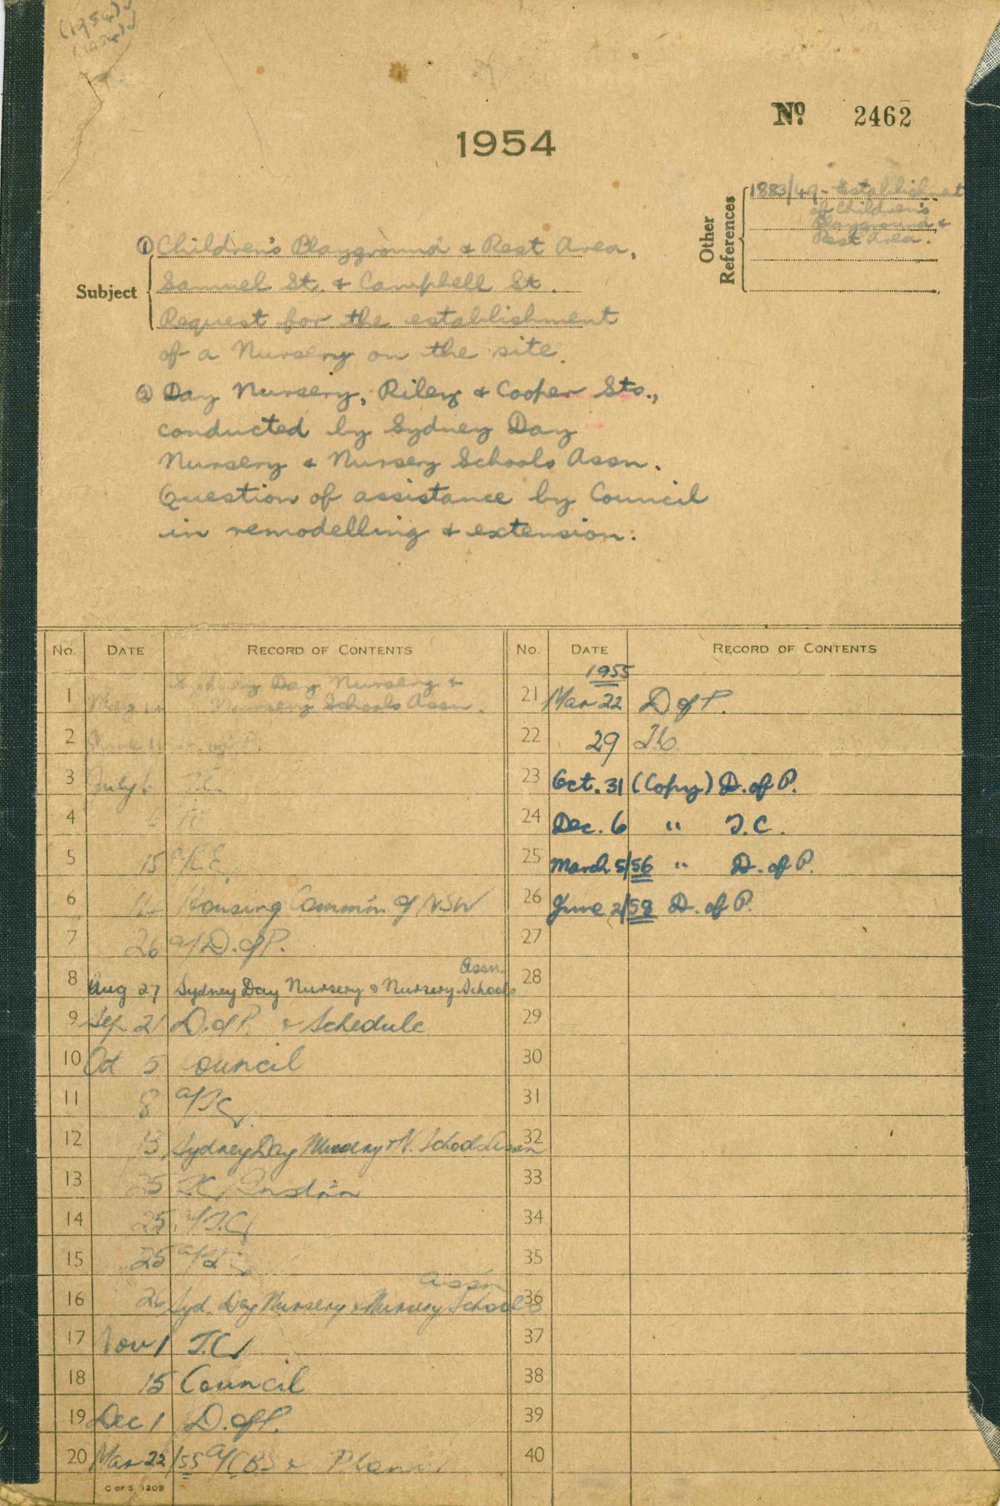 (1954)
1954
No 2462
Other References
1883/49 - Establishment
of Children's
Playground &
Rest Area.
Subject
① Children's Playground & Rest Area,
Samuel St. & Campbell St.
Request for the establishment
of a Nursery on the site.
② Day Nursery, Riley & Cooper Sts.,
conducted by Sydney Day
Nursery & Nursery Schools Assn.
Question of assistance by Council
in remodelling & extension.
No. DATE RECORD OF CONTENTS
1 Sydney Day Nursery &
Nursery Schools Assn.
2 June D. of P.
3 July 6 T.C.
4 6
5 15
6 Housing Commn. of NSW
7 26 a/D. of P.
8 Aug 27 Sydney Day Nursery & Nursery Schools Assn.
9 Sep 21 D. of P. & Schedule
10 Oct 5 Council
11 8 a/T.C.
12 13 Sydney Day Nursery & N. School Assn
13 25 T.C.
14 25 a/T.C.
15 25
16 26 Syd. Day Nursery & Nursery Schools Assn
17 Nov 1 T.C.
18 15 Council
19 Dec 1 D. of P.
20 Mar 22/55
C OF S 1209
No. DATE RECORD OF CONTENTS
1955
21 Mar 22 D of P.
22 29 T.C.
23 Oct. 31 (Copy) D. of P.
24 Dec. 6 " T.C.
25 March 5/56 " D. of P.
26 June 2/58 D. of P.
27
28
29
30
31
32
33
34
35
36
37
38
39
40